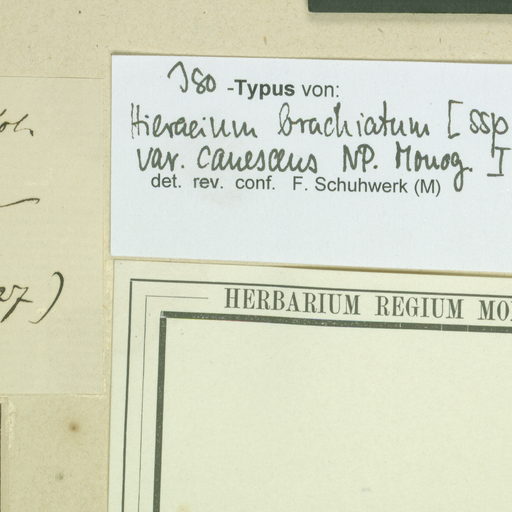 Iso -Typus von:
Hieracium brachiatum [ssp
var. canescens NP. Monog. I
det. rev. conf. F. Schuhwerk (M)
27)
HERBARIUM REGIUM MO